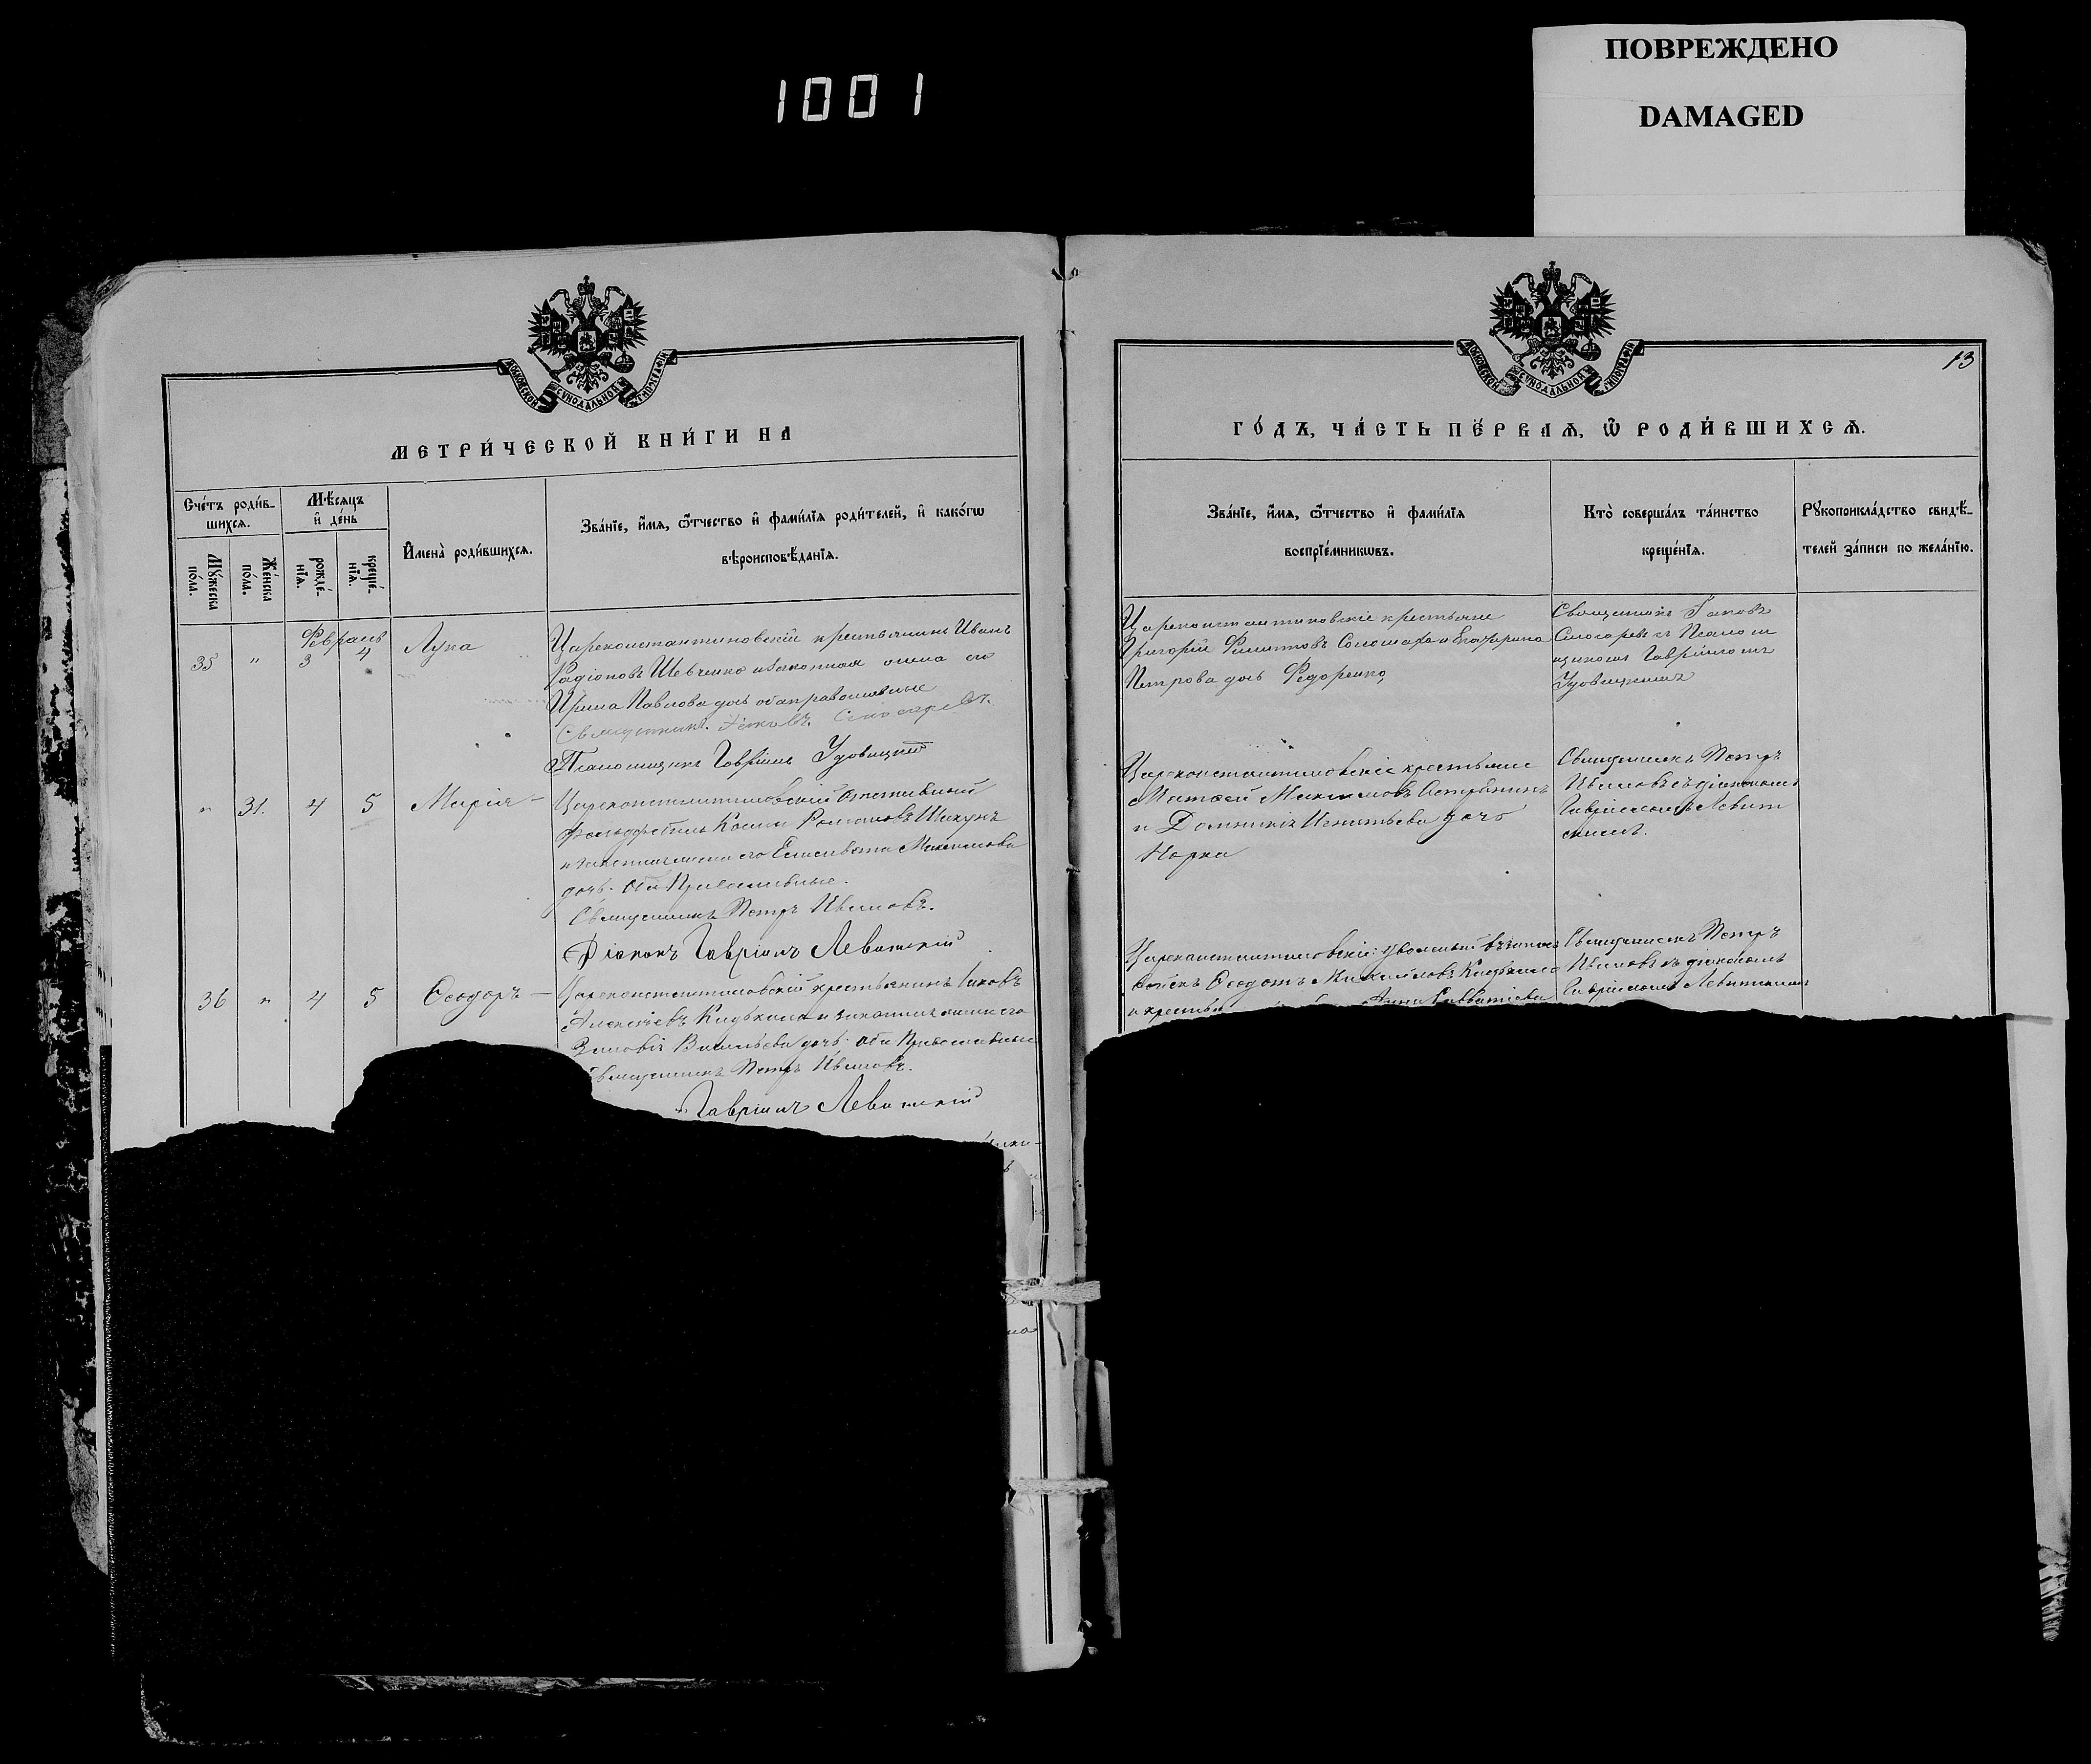 1001
ПОВРЕЖДЕНО
DAMAGED
МОСКОВСКОЙ СѴНОДАЛЬНОЙ ТИПОГРАФІИ
МЕТРИ́ЧЕСКОЙ КНИ́ГИ НА
Сче́тъ роди́в-
шихся.
Мѣ́сяцъ
и де́нь
Му́жеска
по́ла.
Же́нска
по́ла.
рожде́-
нія.
креще́-
нія.
Имена̀ роди́вшихся.
Зва́ніе, и́мя, ѻ҆́тчество и фами́лія роди́телей, и како́гѡ
вѣроисповѣ́данія.
Февраль
35 " 3 4 Лука
Цареконстантиновскій крестьянинъ Иванъ
Радіоновъ Шевченко и законная жена его
Ирина Павлова дочь оба православные
Священникъ Іаковъ
Псаломщикъ Гавріилъ Удовицкій
" 31. 4 5 Марія
Цареконстантиновскій
Косма Романовъ
и законная жена его Елисавета Максимова
дочь. Оба Православные.
Священникъ Петръ Ивановъ.
Діаконъ Гавріилъ Левитскій
36 " 4 5 Ѳеодоръ
Цареконстантиновскій крестьянинъ Іаковъ
Алексѣевъ и законная жена его
Зиновія Васильева дочь. Оба Православные
Священникъ Петръ Ивановъ.
Гавріилъ Левитскій
МОСКОВСКОЙ СѴНОДАЛЬНОЙ ТИПОГРАФІИ
13
ГО́ДЪ, ЧА́СТЬ ПЕ́РВАЯ, Ѡ РОДИ́ВШИХСЯ.
Зва́ніе, и́мя, ѻ҆́тчество и фами́лія
воспріе́мникѡвъ.
Кто̀ соверша́лъ та́инство
креще́нія.
Рꙋкоприкла́дство свидѣ́-
телей за́писи по жела́нію.
Цареконстантиновскіе крестьяне
Григорій Филипповъ Соломаха и Екатерина
Петрова дочь Федоренко
Священникъ Іаковъ
съ Псалом
щикомъ Гавріиломъ
Удовицкимъ
Цареконстантиновскіе крестьяне
Матѳей Максимовъ
и Домникія Игнатьева дочь
Норка
Священникъ Петръ
Ивановъ съ діакономъ
Гавріиломъ Левит
скимъ.
Цареконстантиновскій: уволенный въ запасъ
войскъ Ѳеодотъ Михайловъ
Анна Савватіева
Священникъ Петръ
Ивановъ съ діакономъ
Гавріиломъ Левитскимъ